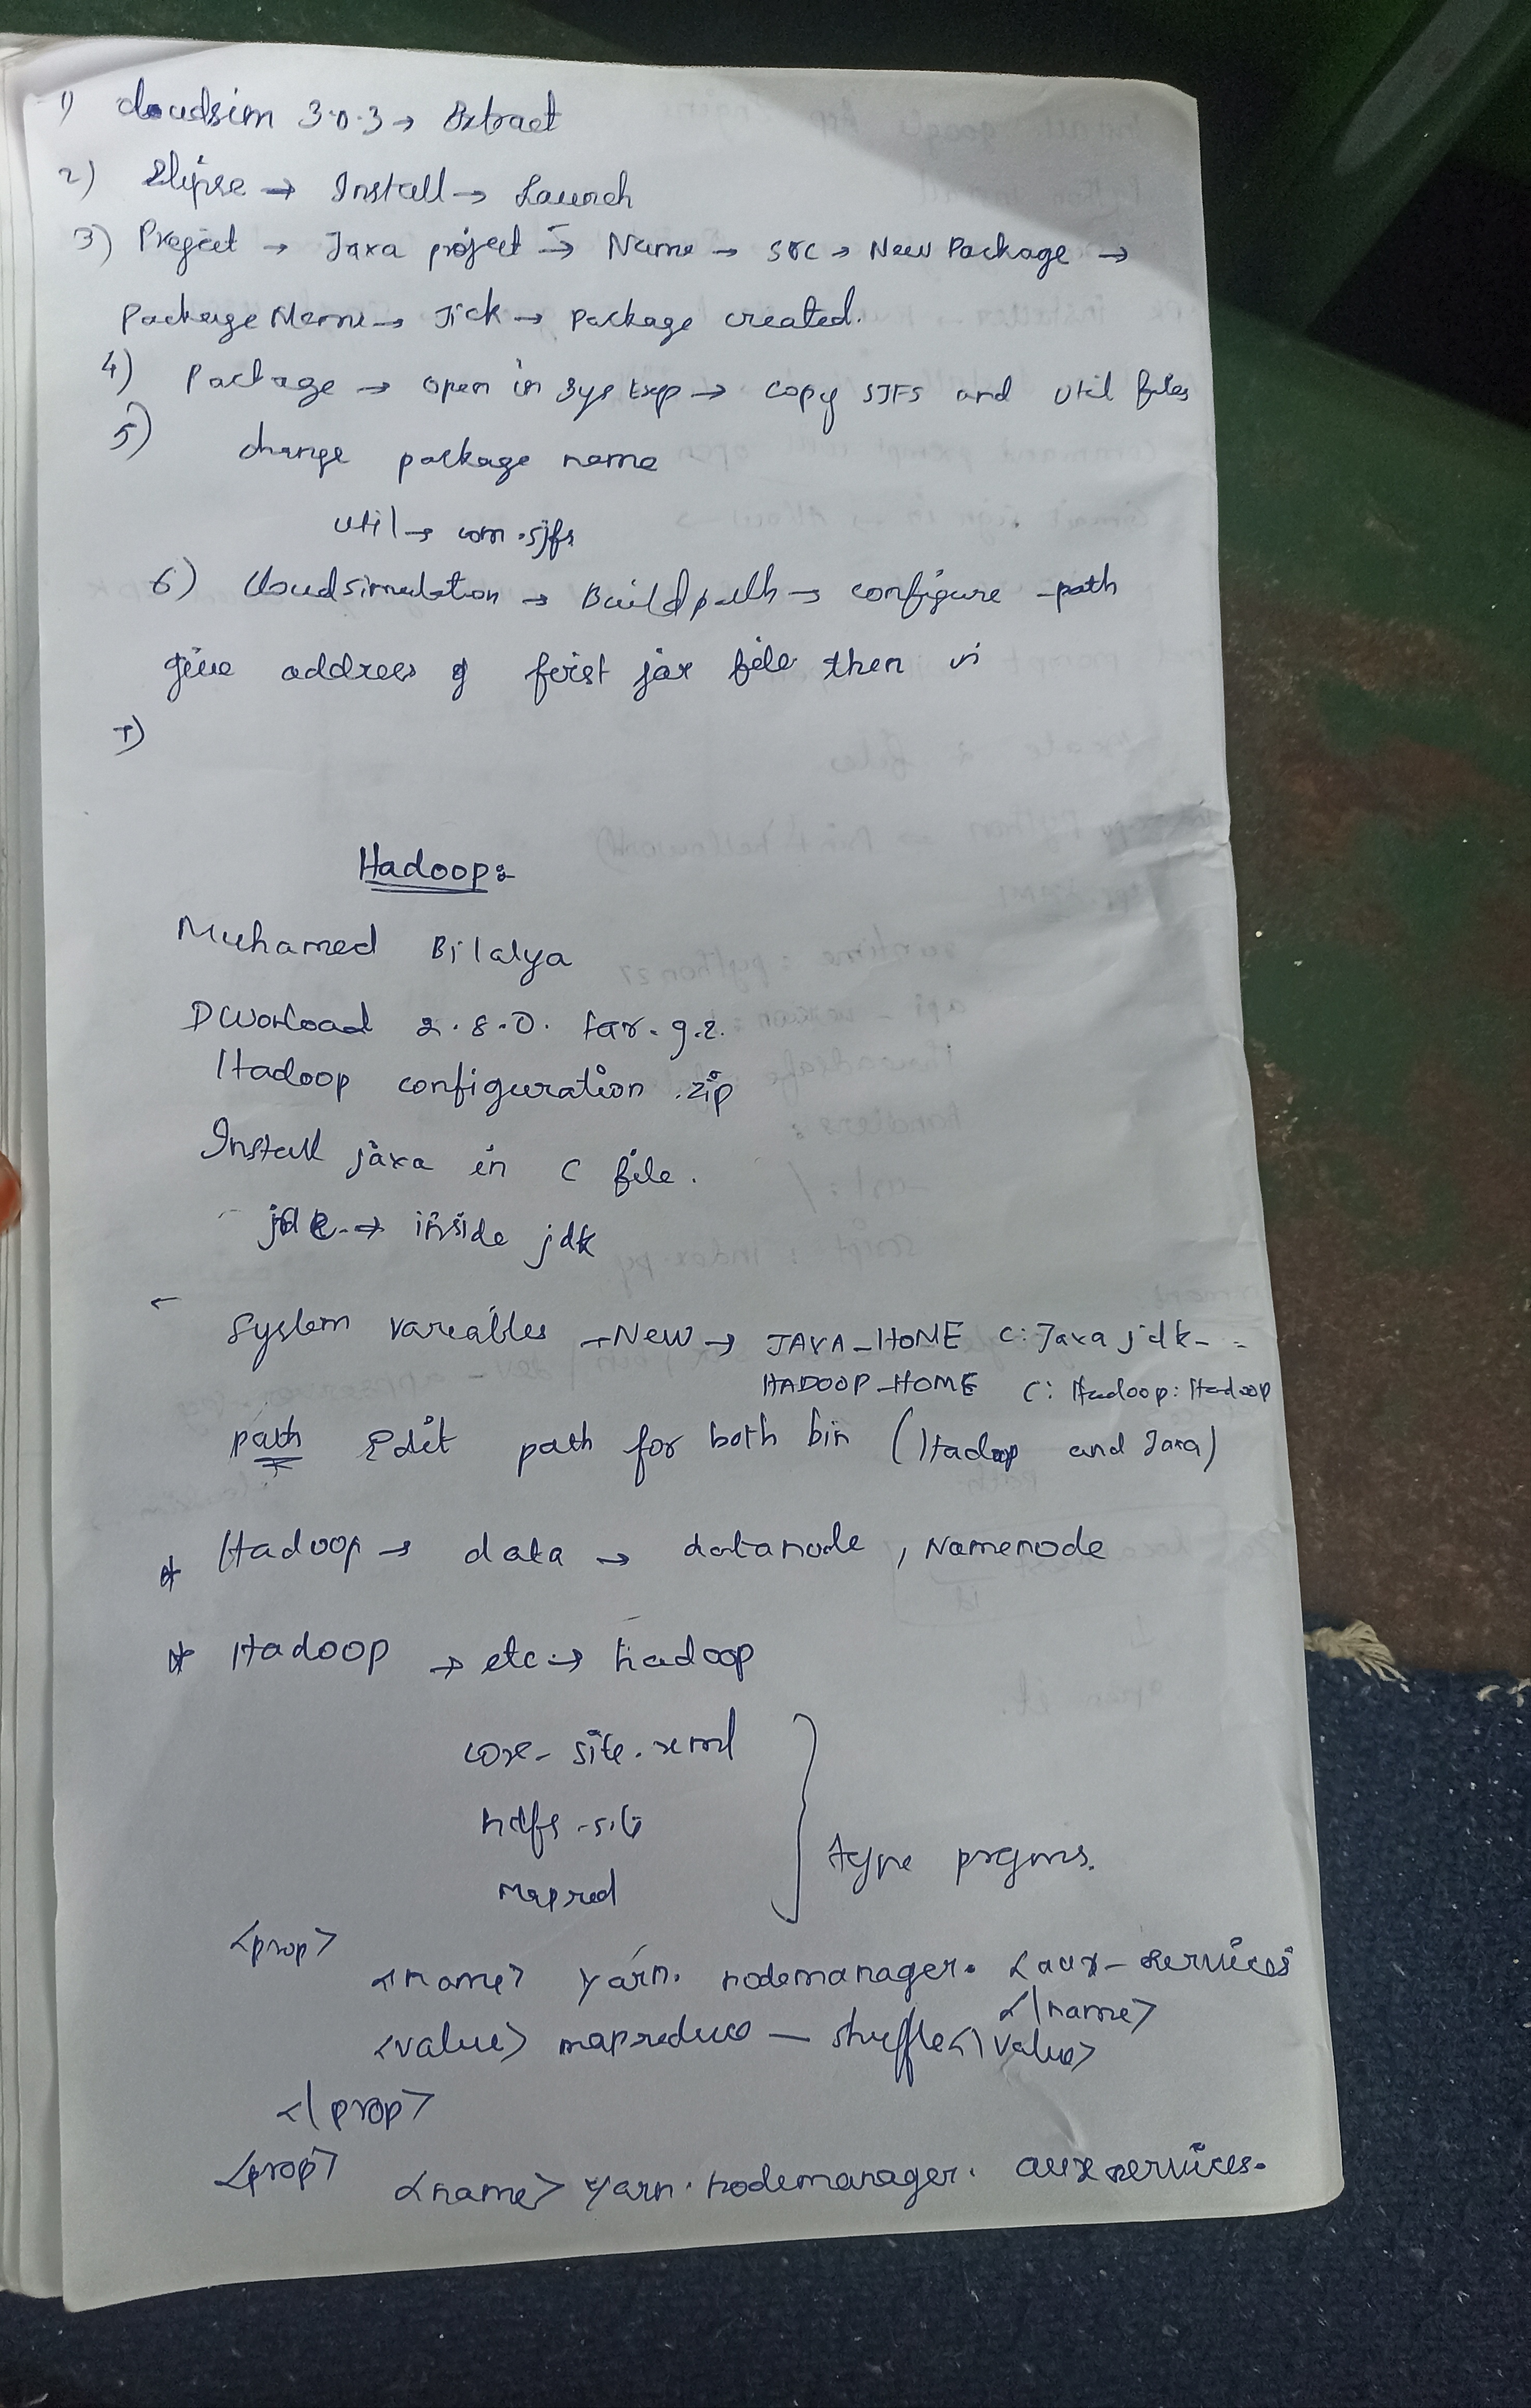 1) cloudsim 3.0.3 → Extract
2) Elipse → Install → Launch
3) Project → Java project → Name → src → New Package →
Package Name → Tick → package created.
4) Package → open in sys Exp → copy SJFS and util files
5) change package name
util → com.sjfs
6) Cloudsimulation → Buildpath → configure -path
give address of first jar file then
7)
Hadoop:
Muhamed Bilalya
Dworload 2.8.0. tar.g.z.
Hadoop configuration .zip
Install java in C file.
→ inside jdk
System variables → New → JAVA_HOME C: Java jdk-
HADOOP_HOME C: Hadoop: Hadoop
path Edit path for both bin (Hadoop and Java)
* Hadoop → data → datanode, Namenode
* Hadoop → etc → hadoop
core-site.xml
hdfs-site
mapred
type prgms.
<prop>
<name> yarn. nodemanager. <aux-services
<\name>
<value> mapreduce — shuffle<\value>
<\prop>
<prop>
<name> yarn. nodemanager. aux services.